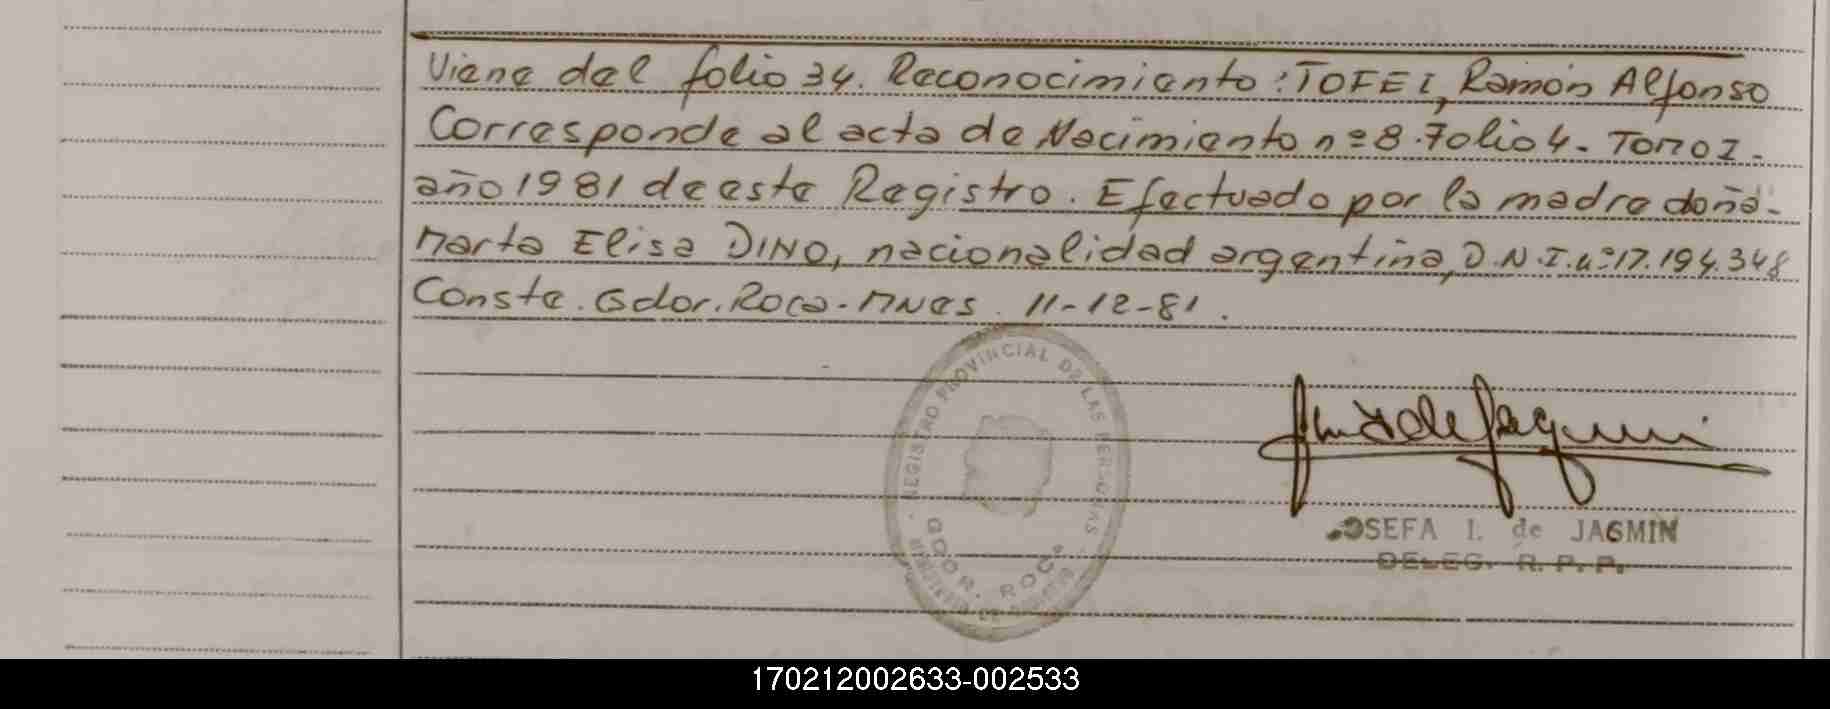 Viene del folio 34. Reconocimiento: TOFEI, Ramón Alfonso
Corresponde al acta de Nacimiento nº 8. Folio 4. Tomo I.
año 1981 de este Registro. Efectuado por la madre doña
Marta Elisa DINO, nacionalidad argentina, D.N.I. nº 17.194.348
Conste. Gdor. Roca - Mnes. 11-12-81.
REGISTRO PROVINCIAL DE LAS PERSONAS
GDOR. ROCA
JOSEFA I. de JAGMIN
DELEG. R. P. P.
170212002633-002533